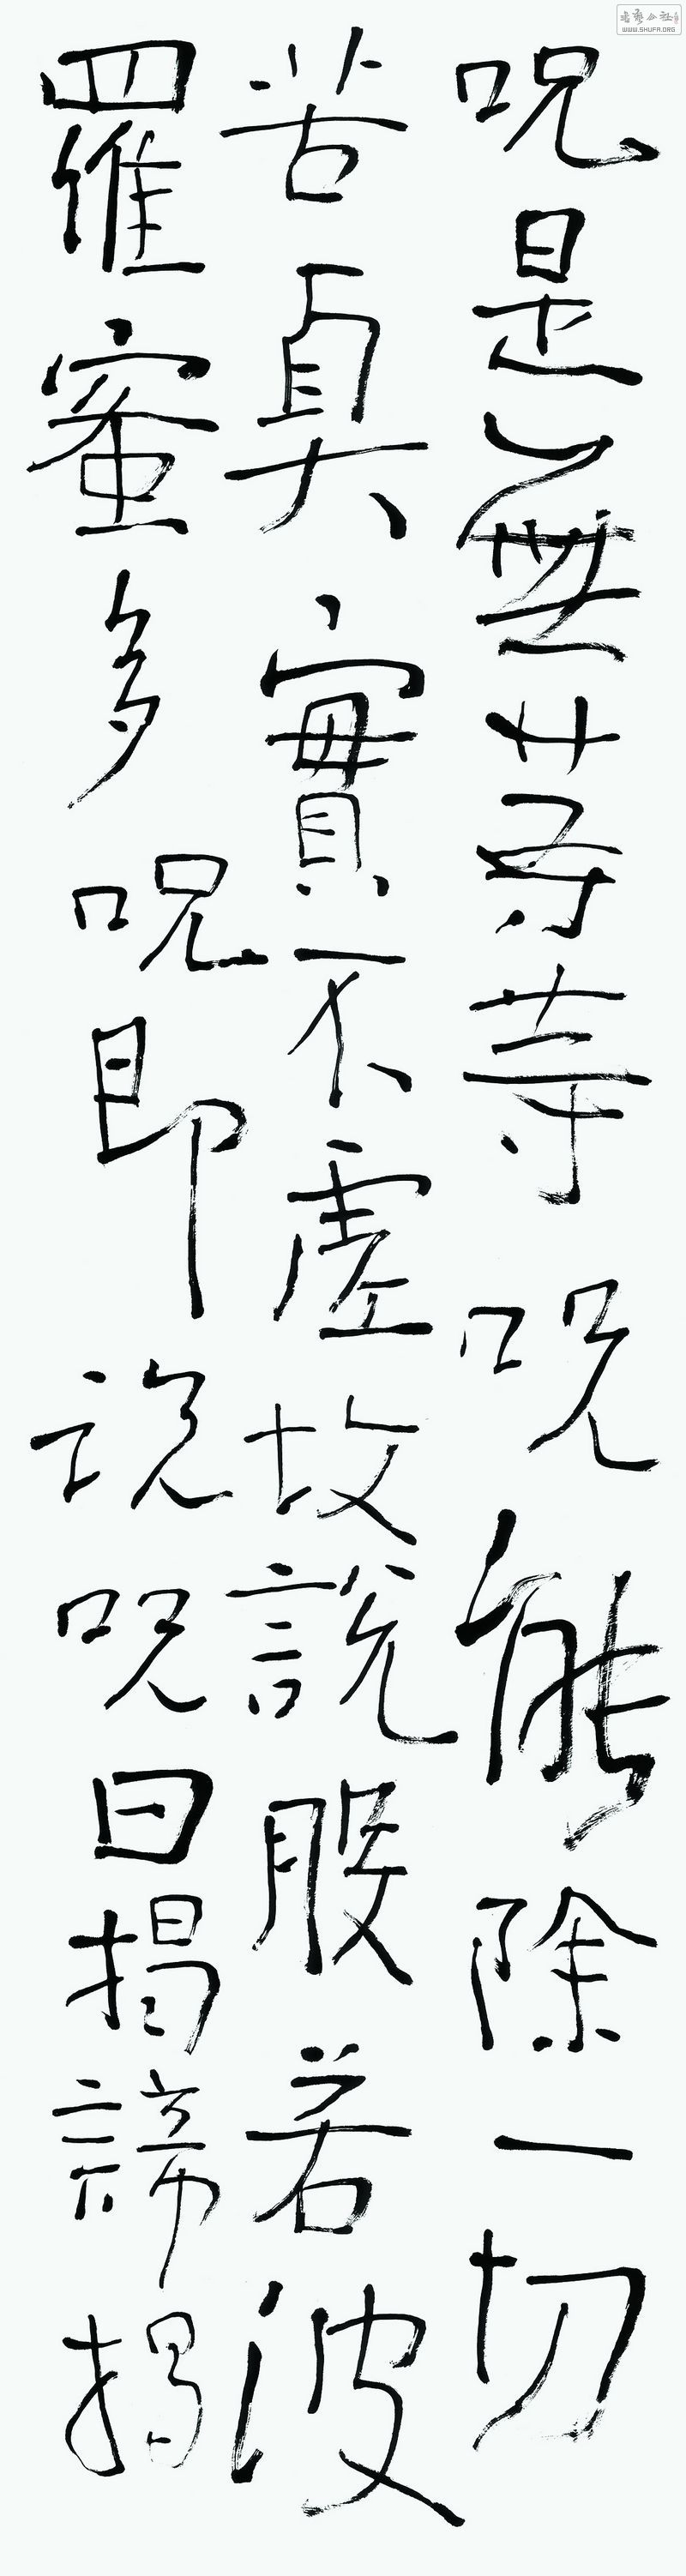 呪是無等等呪能除一切
苦真實不虛故說般若波
羅蜜多呪即說呪曰揭諦揭
WWW.SHUFA.ORG